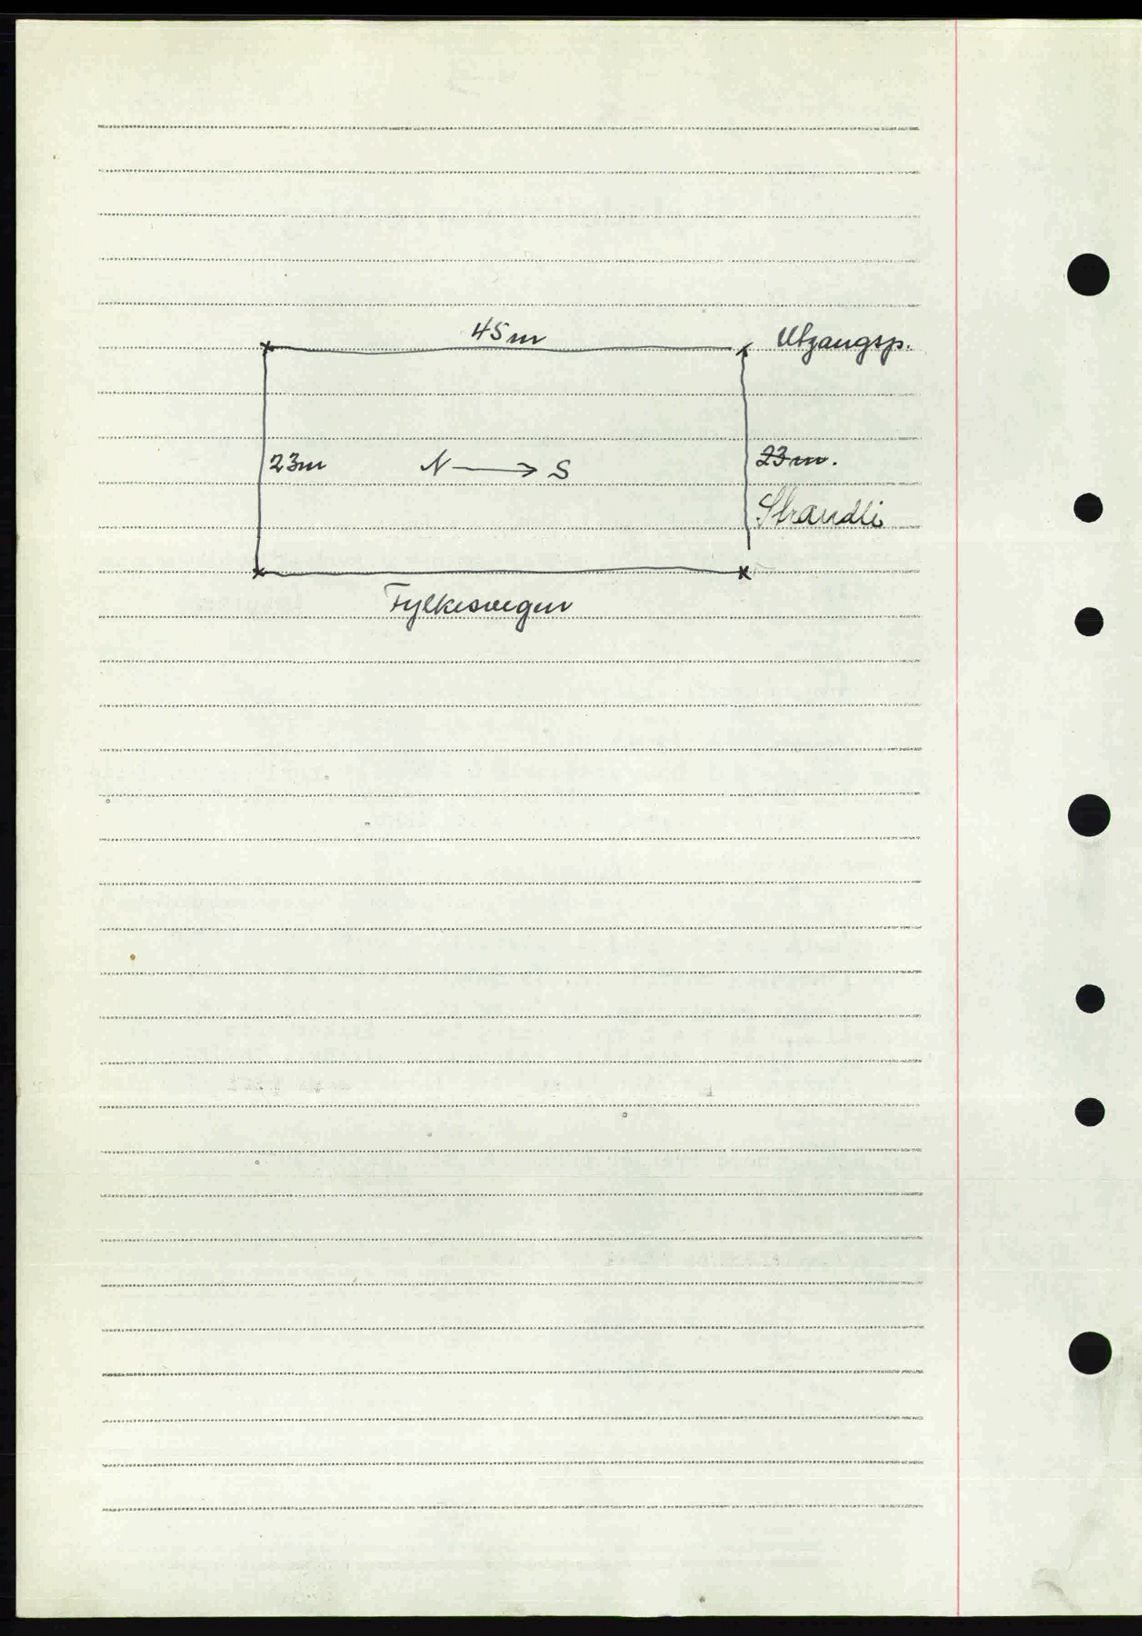 45m
Utgangsp.
23m
N → S
23m.
Strandli
Fylkesvegen